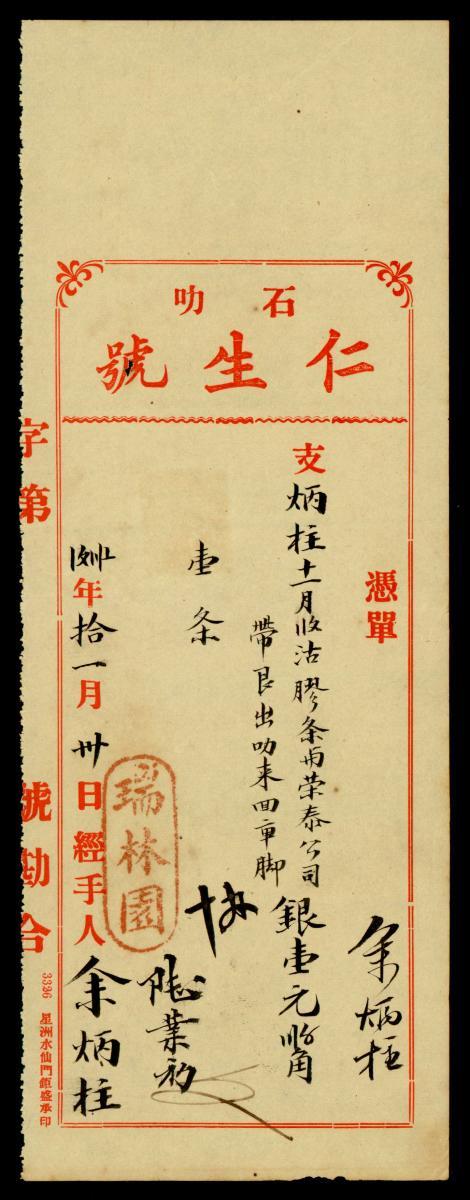 石叻
仁生號
憑單
余炳柱
支炳柱十一月收沽膠条甫荣泰公司銀壹元
帶艮出叻来回車脚
壹条
瑞林園
年拾一月卅日經手人余炳柱
字第 號勘合
3326 星洲水仙門鉅盛承印